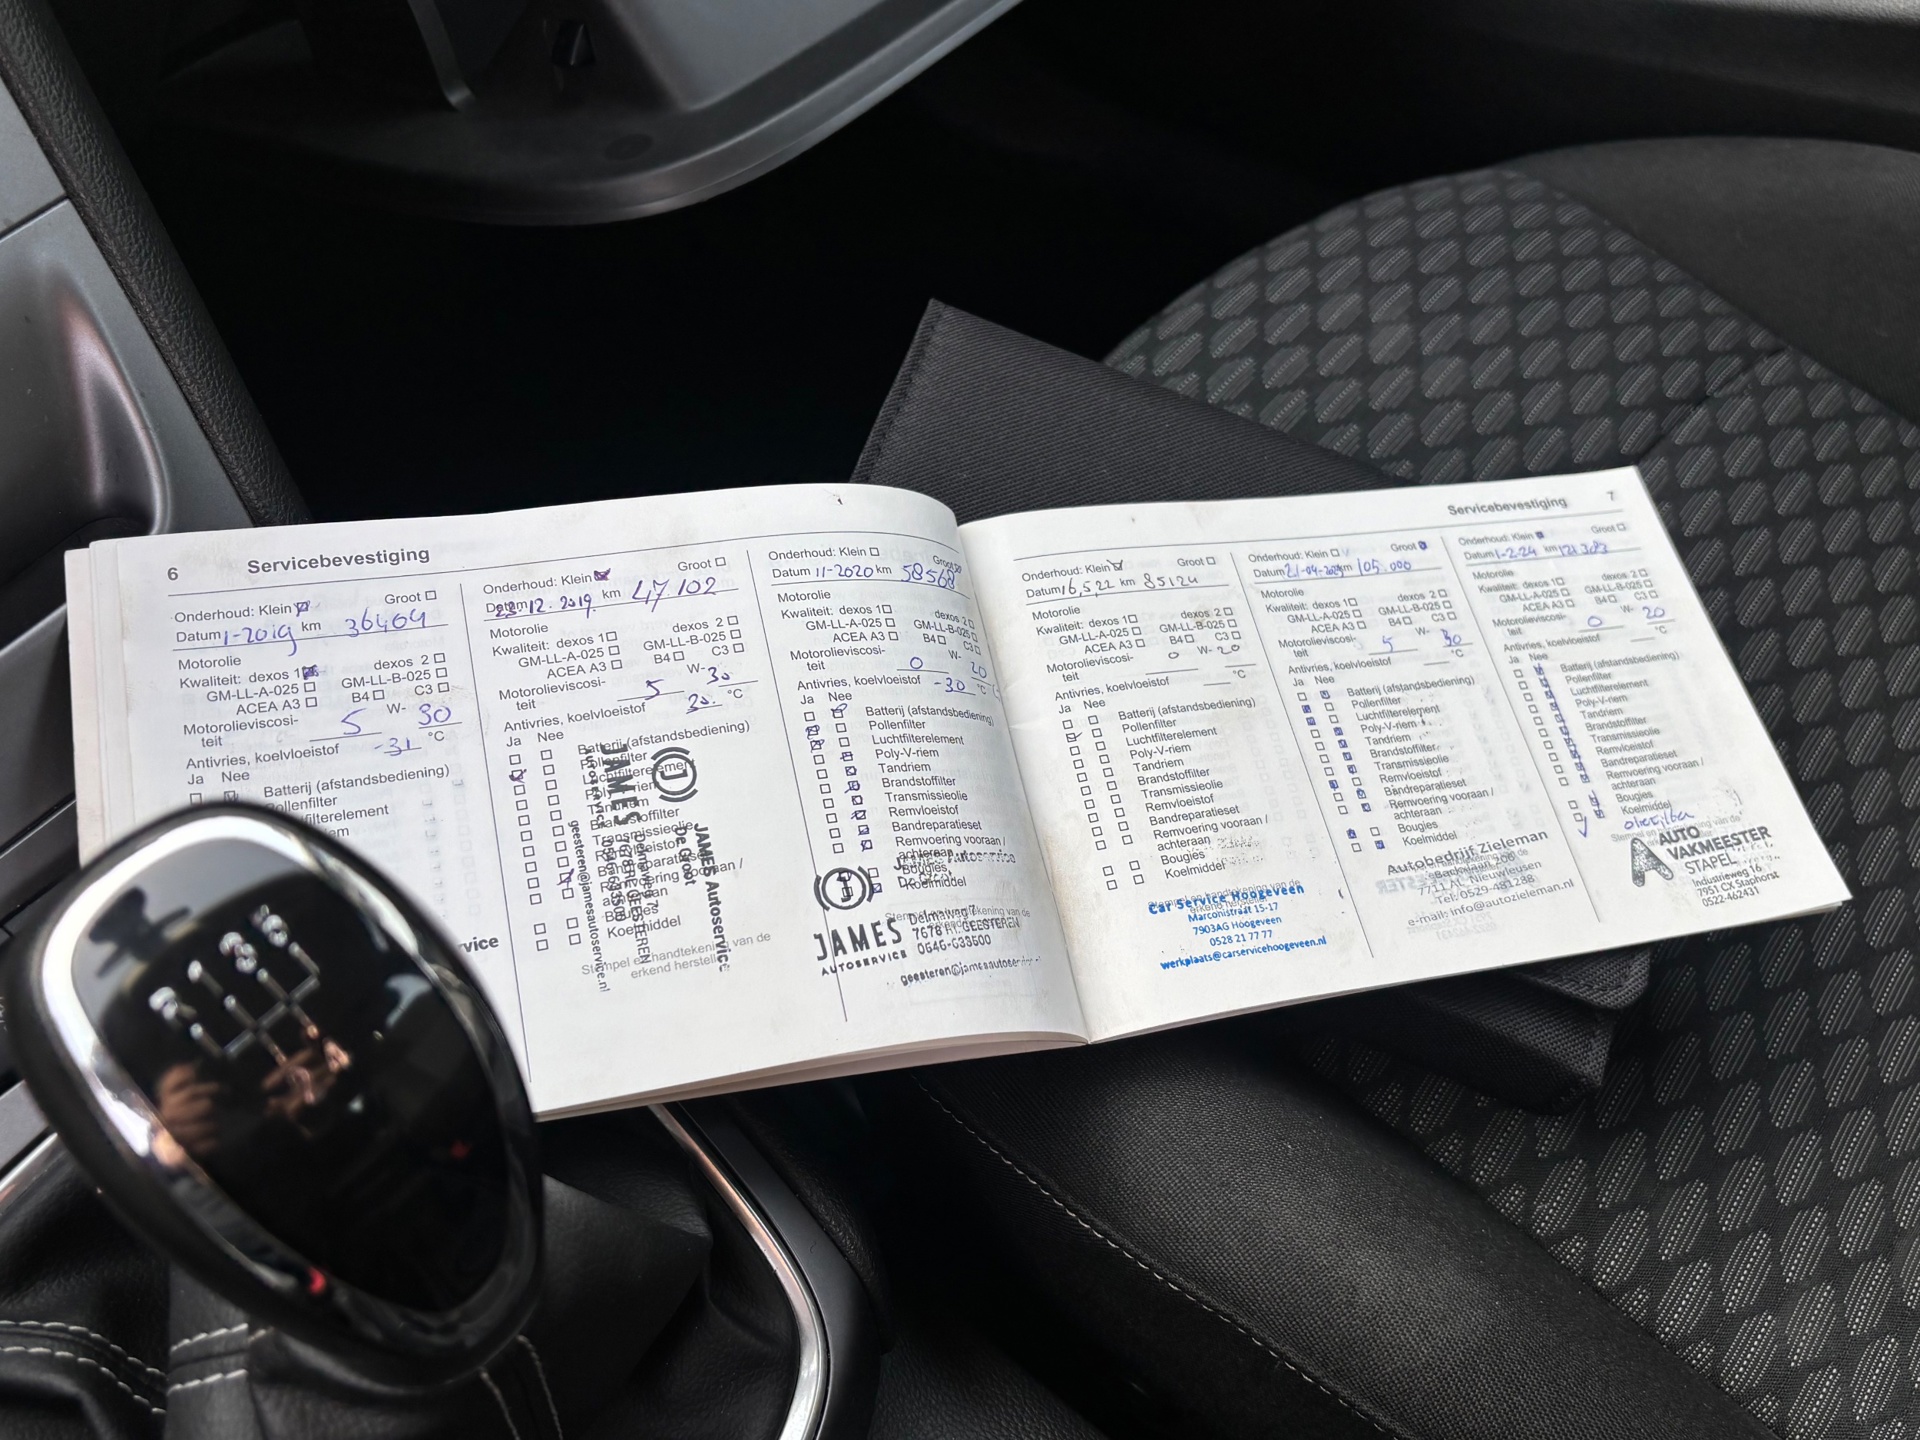 6 Servicebevestiging
Onderhoud: Klein Groot
Datum 1-2019 km 36409
Motorolie
Kwaliteit: dexos 1 dexos 2
GM-LL-A-025 GM-LL-B-025
ACEA A3 B4 C3
Motorolieviscosi-
teit 5 W- 30
Antivries, koelvloeistof -31 °C
Ja Nee
Batterij (afstandsbediening)
Pollenfilter
vice
Onderhoud: Klein Groot
Datum 23.12.2019 km 47102
Motorolie
Kwaliteit: dexos 1 dexos 2
GM-LL-A-025 GM-LL-B-025
ACEA A3 B4 C3
Motorolieviscosi-
teit 5 W- 30
Antivries, koelvloeistof 30. °C
Ja Nee
Batterij (afstandsbediening)
Pollenfilter
Luchtfilterelement
Poly-V-riem
Tandriem
Brandstoffilter
Transmissieolie
Remvloeistof
Bandreparatieset
Remvoering vooraan /
achteraan
Bougies
Koelmiddel
Stempel en handtekening van de
erkend hersteller
JAMES
Autoservice
JAMES Autoservice
De Groot
Delmaweg 7
7678 RL GEESTEREN
0546-633500
geesteren@jamesautoservice.nl
Onderhoud: Klein Groot
Datum 11-2020 km 58568
Motorolie
Kwaliteit: dexos 1 dexos 2
GM-LL-A-025 GM-LL-B-025
ACEA A3 B4 C3
Motorolieviscosi-
teit 0 W- 20
Antivries, koelvloeistof -30 °C
Ja Nee
Batterij (afstandsbediening)
Pollenfilter
Luchtfilterelement
Poly-V-riem
Tandriem
Brandstoffilter
Transmissieolie
Remvloeistof
Bandreparatieset
Remvoering vooraan /
achteraan
Bougies
Koelmiddel
JAMES
AUTOSERVICE
Delmaweg 7
7678 RL GEESTEREN
0546-633500
geesteren@jamesautoservice.nl
Servicebevestiging 7
Onderhoud: Klein Groot
Datum 16,5,22 km 85124
Motorolie
Kwaliteit: dexos 1 dexos 2
GM-LL-A-025 GM-LL-B-025
ACEA A3 B4 C3
Motorolieviscosi-
teit 0 W- 20
Antivries, koelvloeistof °C
Ja Nee
Batterij (afstandsbediening)
Pollenfilter
Luchtfilterelement
Poly-V-riem
Tandriem
Brandstoffilter
Transmissieolie
Remvloeistof
Bandreparatieset
Remvoering vooraan /
achteraan
Bougies
Koelmiddel
Car Service Hoogeveen
Marconistraat 15-17
7903AG Hoogeveen
0528 21 77 77
werkplaats@carservicehoogeveen.nl
Onderhoud: Klein Groot
Datum 21-04-2023 km 105.000
Motorolie
Kwaliteit: dexos 1 dexos 2
GM-LL-A-025 GM-LL-B-025
ACEA A3 B4 C3
Motorolieviscosi-
teit 5 W- 30
Antivries, koelvloeistof °C
Ja Nee
Batterij (afstandsbediening)
Pollenfilter
Luchtfilterelement
Poly-V-riem
Tandriem
Brandstoffilter
Transmissieolie
Remvloeistof
Bandreparatieset
Remvoering vooraan /
achteraan
Bougies
Koelmiddel
Autobedrijf Zieleman
7711 Nieuwleusen
Tel: 0529-481288
e-mail: info@autozieleman.nl
Onderhoud: Klein Groot
Datum 1-2-24 km 121383
Motorolie
Kwaliteit: dexos 1 dexos 2
GM-LL-A-025 GM-LL-B-025
ACEA A3 B4 C3
Motorolieviscosi-
teit 0 W- 20
Antivries, koelvloeistof °C
Ja Nee
Batterij (afstandsbediening)
Pollenfilter
Luchtfilterelement
Poly-V-riem
Tandriem
Brandstoffilter
Transmissieolie
Remvloeistof
Bandreparatieset
Remvoering vooraan /
achteraan
Bougies
Koelmiddel
oliefilter
AUTO
VAKMEESTER
STAPEL
Industrieweg 16
7951 CX Staphorst
0522-462431
R 1 3 5
2 4